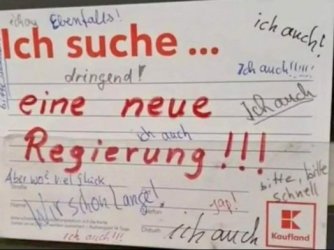 ichau Ebenfalls!
ich auch!
Ich suche ...
dringend!
Ich auch!!!!!!
eine neue
Ich auch
ich auch
Regierung !!!
Aber wo? viel Glück
bitte, bitte
schnell
Straße
Wir schon Lange!
Telefon
Jap!
ich auch
Datum
ich auch!!!
Kaufland